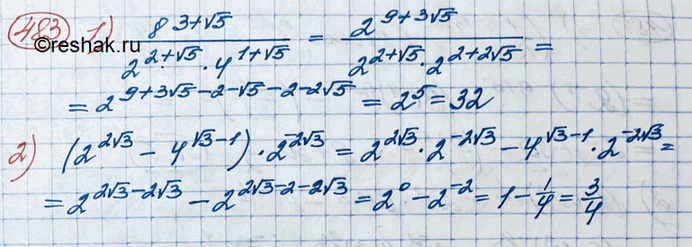 483 1) 8^(3+√5) / (2^(2+√5) · 4^(1+√5)) = 2^(9+3√5) / (2^(2+√5) · 2^(2+2√5)) =
©reshak.ru
= 2^(9+3√5-2-√5-2-2√5) = 2^5 = 32
2) (2^(2√3) - 4^(√3-1)) · 2^(-2√3) = 2^(2√3) · 2^(-2√3) - 4^(√3-1) · 2^(-2√3) =
= 2^(2√3-2√3) - 2^(2√3-2-2√3) = 2^0 - 2^(-2) = 1 - 1/4 = 3/4